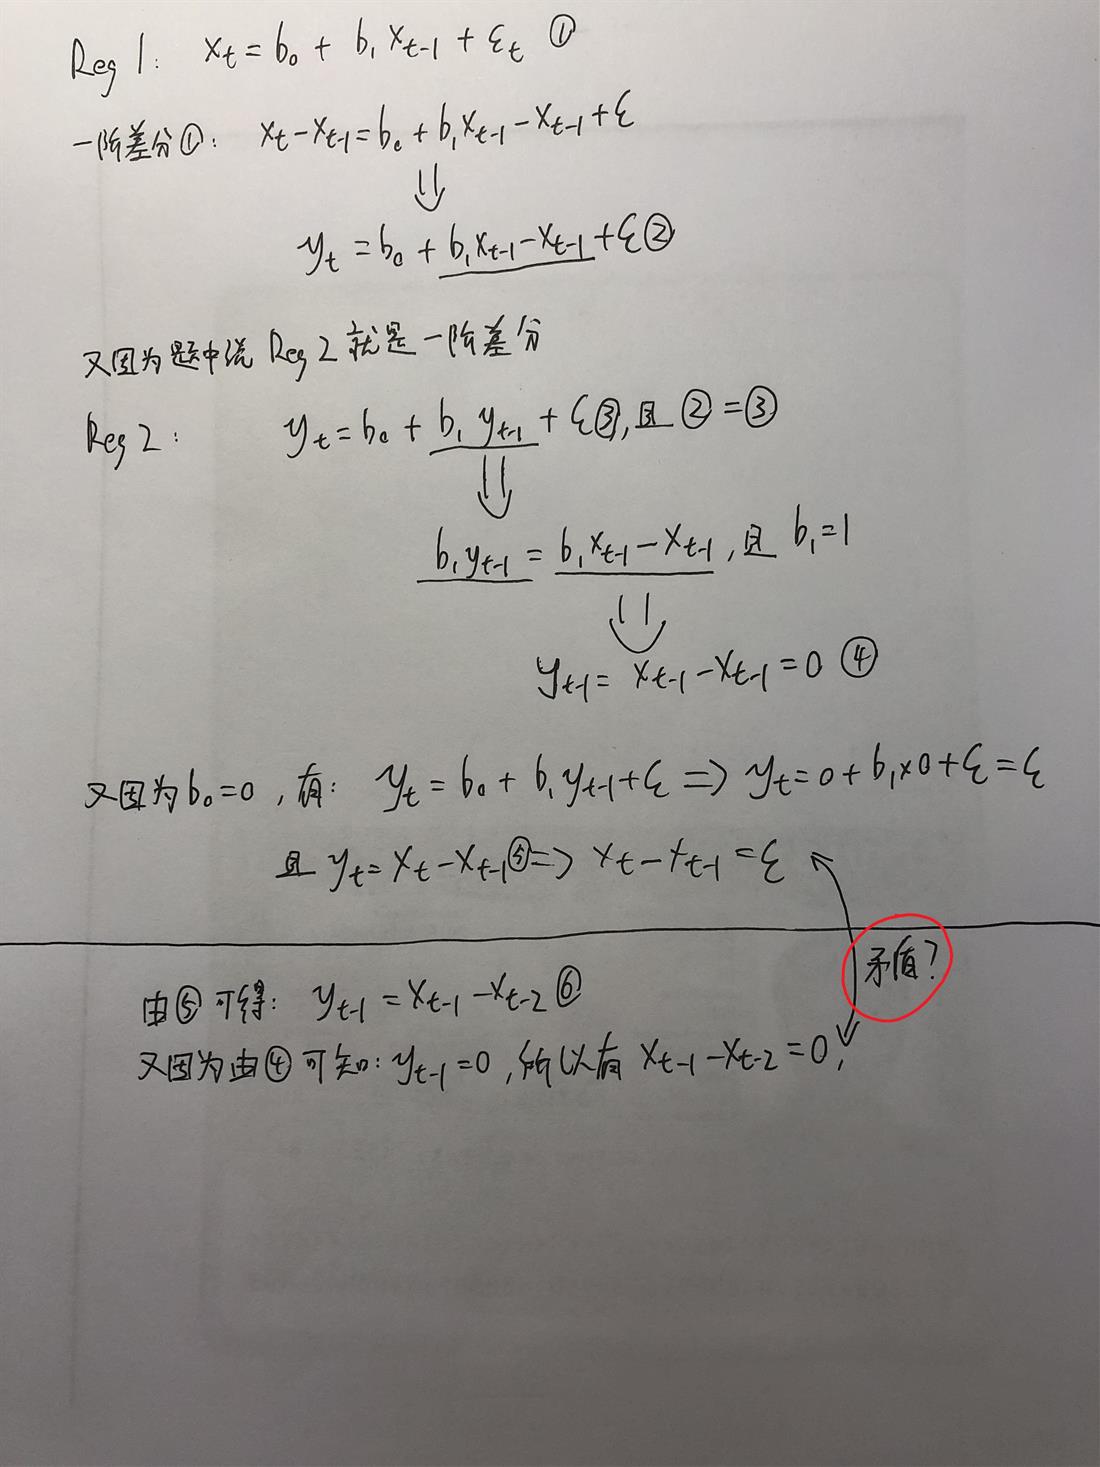 Reg 1: xₜ = b₀ + b₁xₜ₋₁ + εₜ ①
一阶差分①: xₜ-xₜ₋₁ = b₀ + b₁xₜ₋₁ - xₜ₋₁ + ε
⇓
yₜ = b₀ + b₁xₜ₋₁ - xₜ₋₁ + ε ②
又因为题中说 Reg 2 就是一阶差分
Reg 2: yₜ = b₀ + b₁yₜ₋₁ + ε ③, 且 ② = ③
⇓
b₁yₜ₋₁ = b₁xₜ₋₁ - xₜ₋₁, 且 b₁=1
⇓
yₜ₋₁ = xₜ₋₁ - xₜ₋₁ = 0 ④
又因为b₀=0, 有: yₜ = b₀ + b₁yₜ₋₁ + ε ⇒ yₜ = 0 + b₁×0 + ε = ε
且 yₜ = xₜ - xₜ₋₁ ⑤ ⇒ xₜ - xₜ₋₁ = ε
矛盾?
由⑤可得: yₜ₋₁ = xₜ₋₁ - xₜ₋₂ ⑥
又因为由④可知: yₜ₋₁=0, 所以有 xₜ₋₁ - xₜ₋₂ = 0,